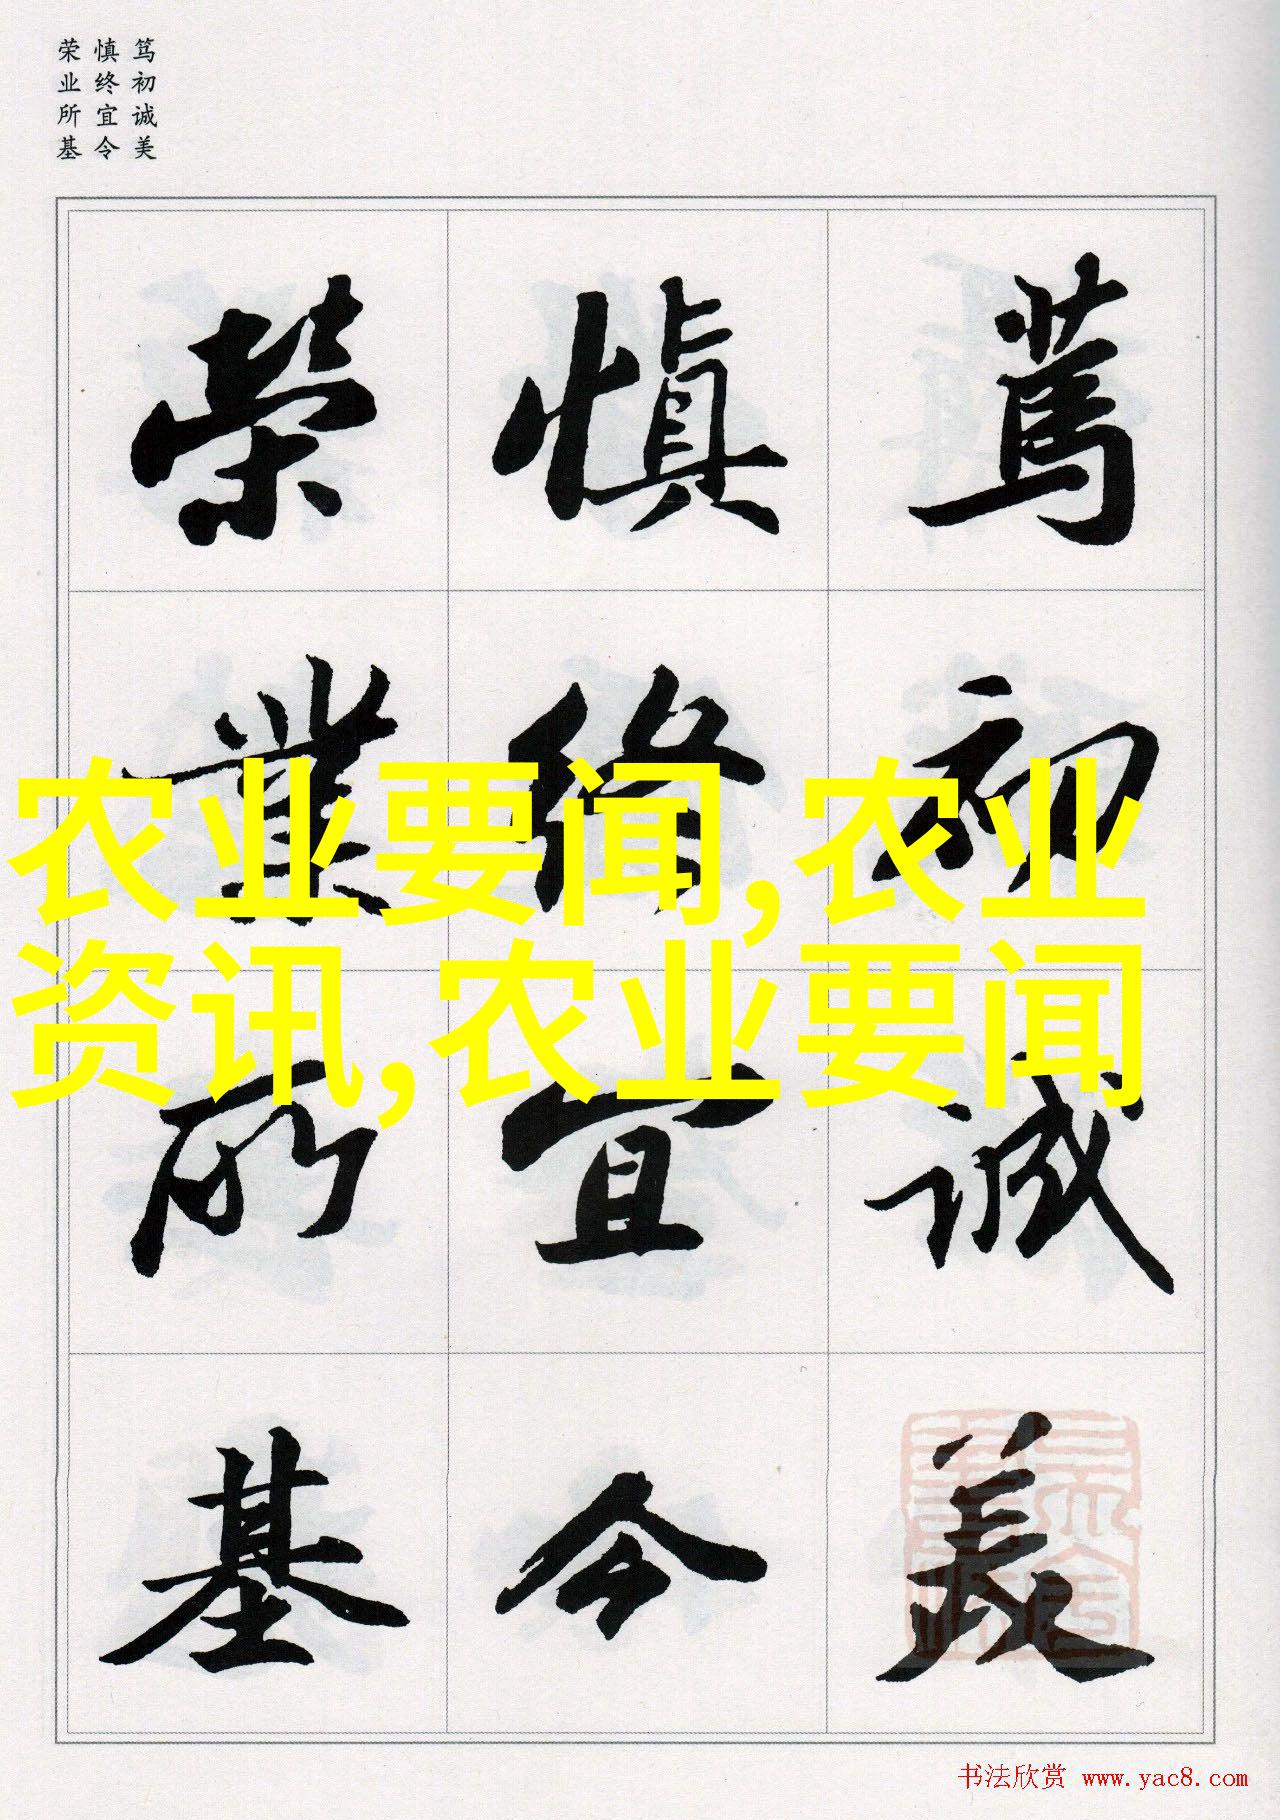 笃初诚美
慎终宜令
荣业所基
篤初诚美
慎终宜令
榮業所基
农业要闻,农业
资讯,农业要闻
书法欣赏 www.yac8.com